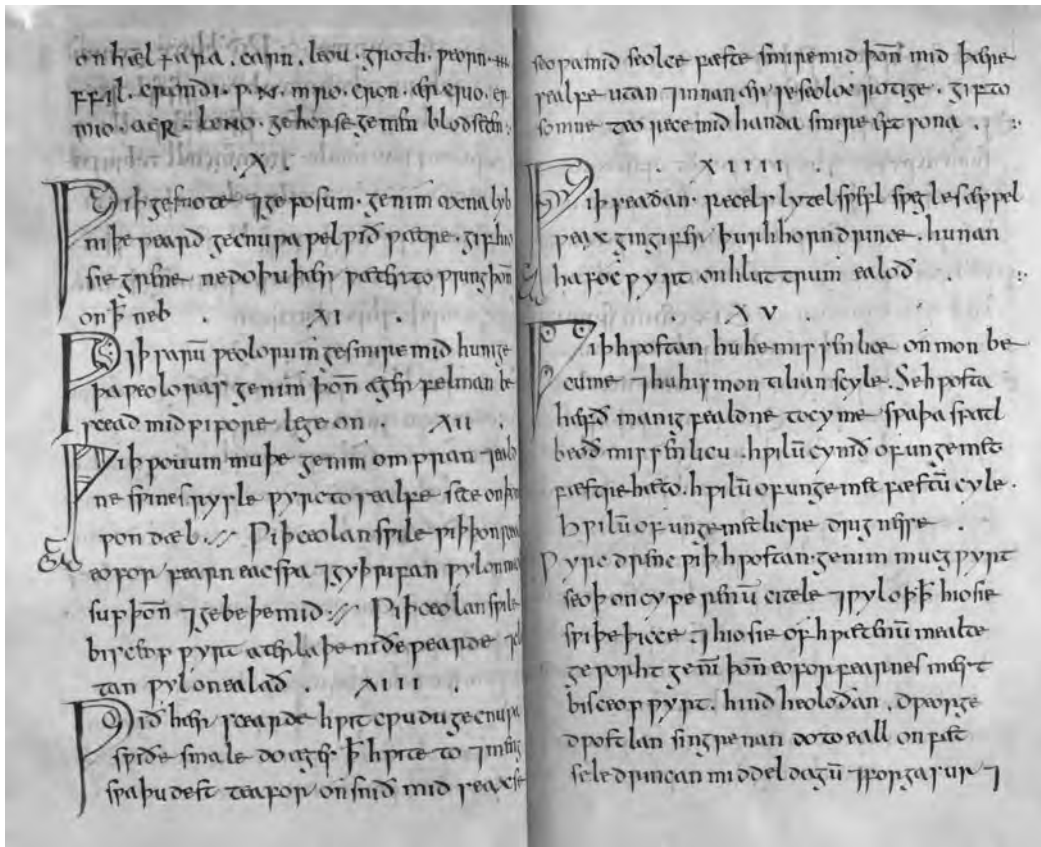 onhæl fara . carn . leou . groth . ƿeorn .
ffil . crondi . ƿ . mro . cron . ær crio . er
mio . aeR . leNo . ge horse ge men blodseten :
.X.
Ƿiþ gesnote ⁊ge posum . genim oxna lyb
niþe ƿeard gecnuƿa ƿel ƿið ƿætre . gif hio
sie grene ne do þu þær ƿæter to ƿring þoñ
on þ̄ neb . .XI .
Ƿiþ sarū ƿeolorum gesmire mid hunige
þa ƿeoloras genim þoñ æger felman be
scead mid pipore lege on . XII .
Ƿiþ ƿouum muþe genim omprran ⁊eald
ne sƿines rysle ƿyrc to sealfe sete on þon
ƿon dæl . Ƿiþ ceolan sƿile ƿiþ þon
eofor fearn eac sƿa ⁊gyþrifan ƿyl on me
sup þoñ ⁊gebeþe mid . Ƿiþ ceolan sƿile
bisceop ƿyrt atterlaþe niðe ƿearde
tan ƿyl on ealað . XIII .
Ƿið hær scearde hƿit cƿudu gecnuƿa
sƿiðe smale do æges þ̄ hƿite to ⁊meng
sƿa þu dest teafor onsnið mid seaxse
seoƿa mid seolce fæste smire mid þoñ mid þære
sealfe utan ⁊innan ær se seoloc rotige . gif to
somne teo rece mid handa smire eft sona . :
. XIIII .
Ƿiþ seadan . recels lytel sƿefl sƿegles æppel
ƿeax gingifer þurh horn drince . hunan
hafoc ƿyrt on hluttrum ealoð . :
XV
Ƿiþ hƿostan hu he missenlice on mon be
cume ⁊hu his mon tilian scyle . Se hƿosta
hæfð manigfealdne tocyme sƿa þa spatl
beoð missenlicu . hƿilū cymð of ungemet
fæstre hæto . hƿilū of ungemet fæstū cyle .
hƿilū of ungemetlicre drignesse .
Ƿyrc drenc ƿiþ hƿostan . genim mucgƿyrt
seoþ on cyperenū citele ⁊ƿyl oþþ hio sie
sƿiþe þicce . ⁊hio sie of hƿætenū mealte
geƿorht genim̄ þoñ eoforfearnes mæst
bisceop ƿyrt . hind heoloðan . dƿeorge
dƿostlan singrenan do to eall on fæt
sele drincan middeldagū ⁊forga sur ⁊